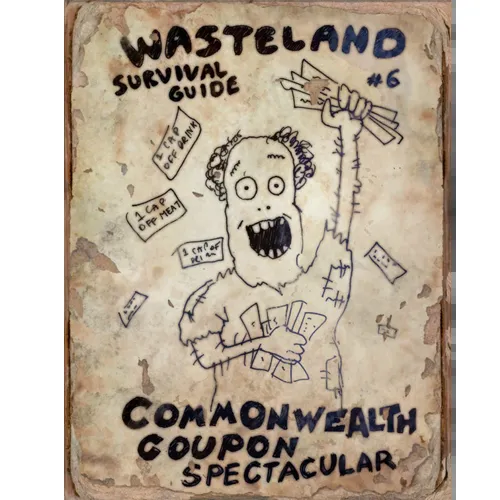 WASTELAND
SURVIVAL
GUIDE
#6
1 CAP
OFF DRINK
1 CAP
OFF MEAT
1 CAP OF
DRINK
COMMONWEALTH
COUPON
SPECTACULAR